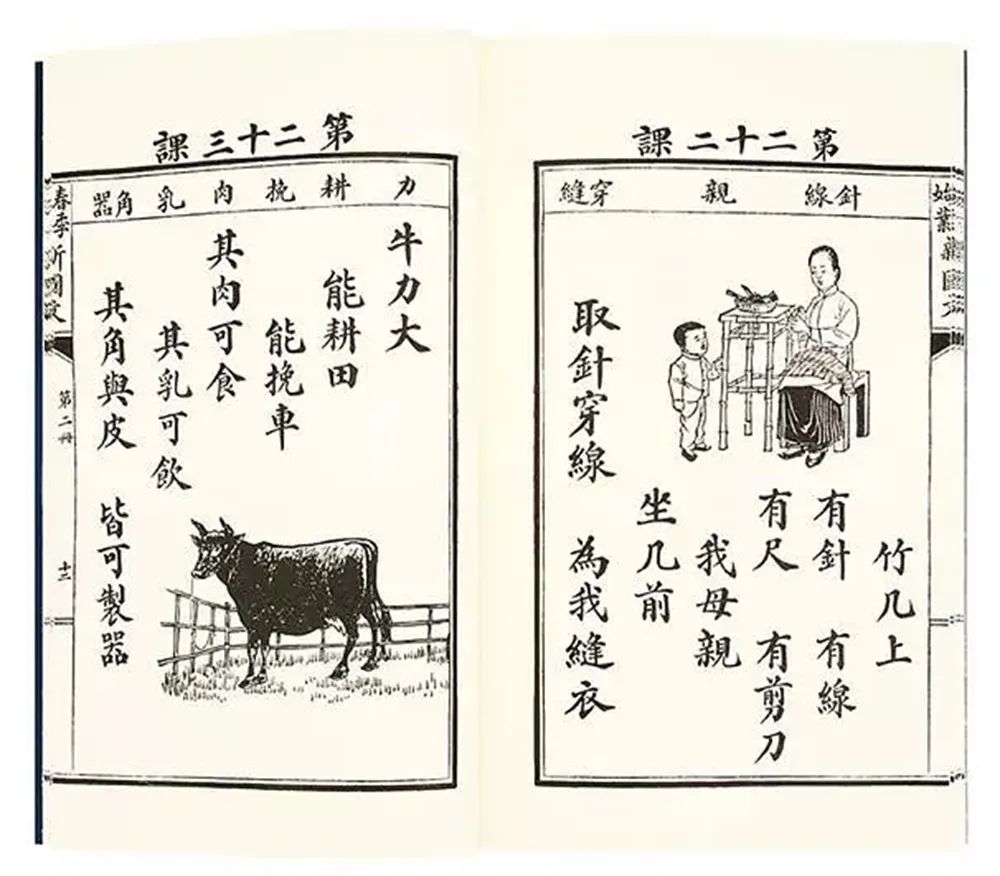 第二十二課
針線 親 穿縫
竹几上
有針 有線
有尺 有剪刀
我母親
坐几前
取針穿線 為我縫衣
第二十三課
力 耕 挽 肉 乳 角器
牛力大
能耕田
能挽車
其肉可食
其乳可飲
其角與皮 皆可製器
春季新國文
第二冊
十三